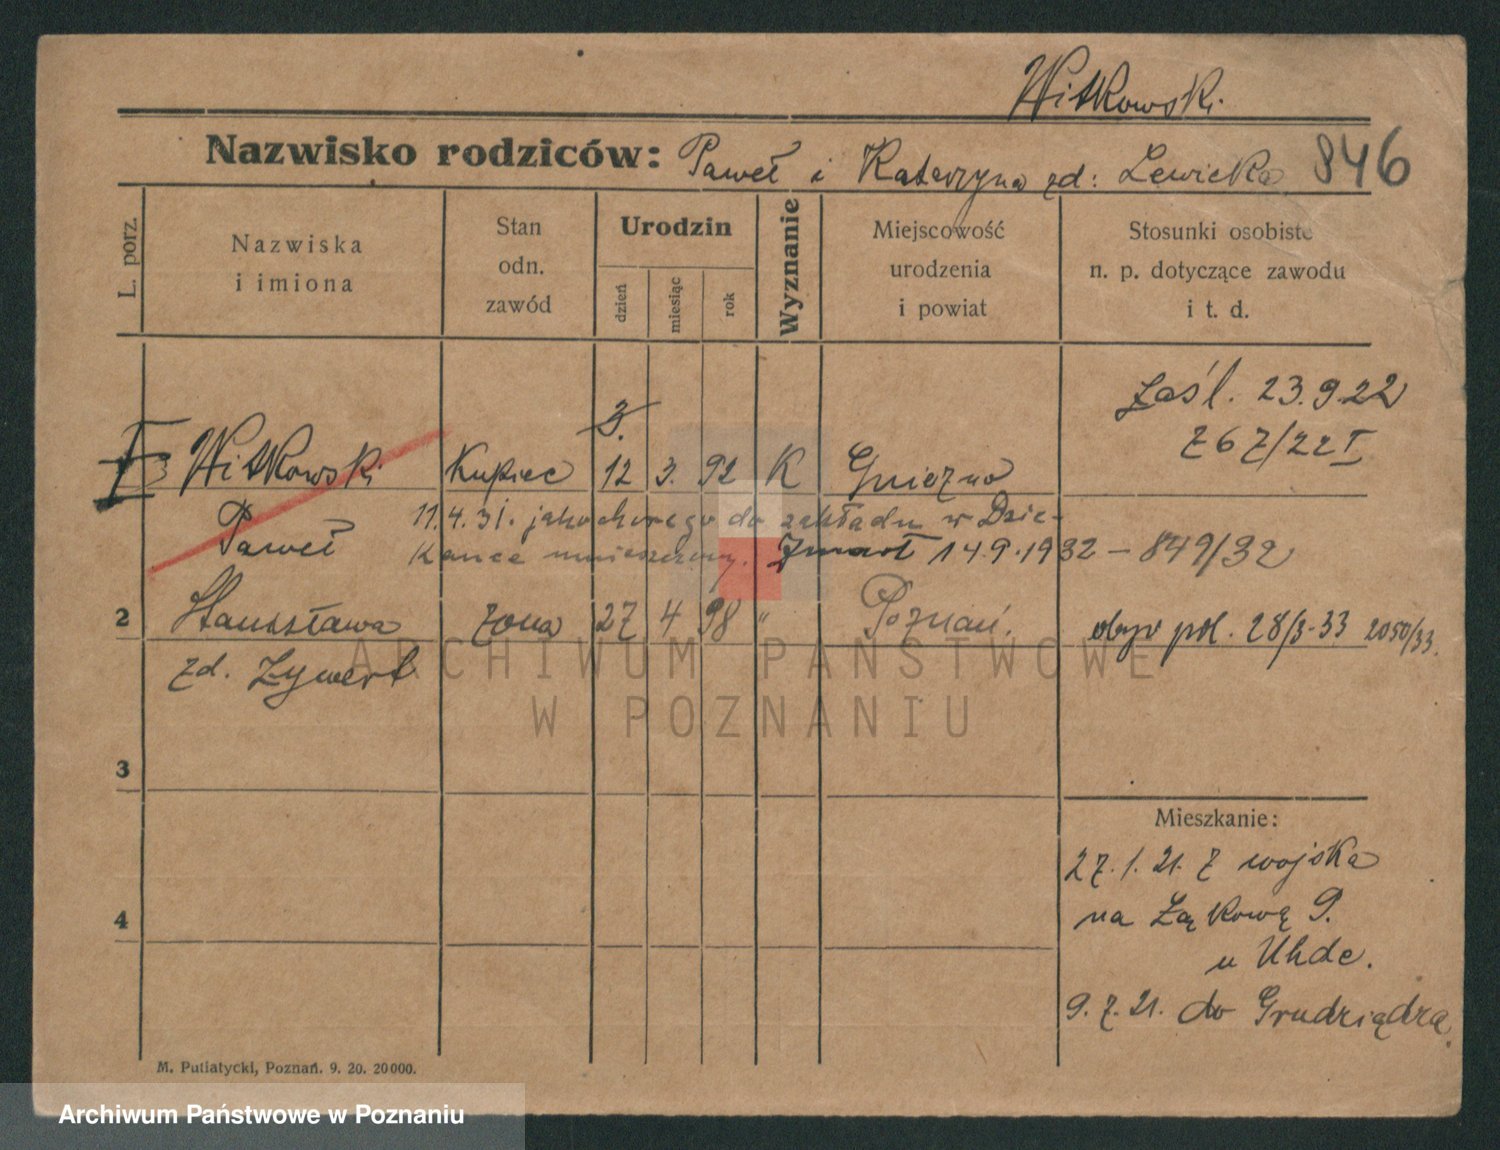 Witkowski.
Nazwisko rodziców: Paweł i Katarzyna zd: Lewicka 846
L. porz.
Nazwiska i imiona
Stan odn. zawód
Urodzin
dzień
miesiąc
rok
Wyznanie
Miejscowość urodzenia i powiat
Stosunki osobiste n. p. dotyczące zawodu i t. d.
zaśl. 23.9.22
767/22 I
3.
Witkowski Kupiec 12 3. 92 K Gniezno
Paweł 11.4.31. jako chorego do zakładu w Dzie-
kance umieszczony. Zmarł 14.9.1932 – 849/32
2 Stanisława żona 27 4 98 " Poznań. obyw pol. 28/3.33 2050/33.
zd. Zywert
3
4
Mieszkanie:
27.1.21. z wojska
na Łąkową 9.
u Uhde.
9.7.21. do Grudziądza.
M. Putiatycki, Poznań. 9. 20. 20000.
ARCHIWUM PAŃSTWOWE
W POZNANIU
Archiwum Państwowe w Poznaniu